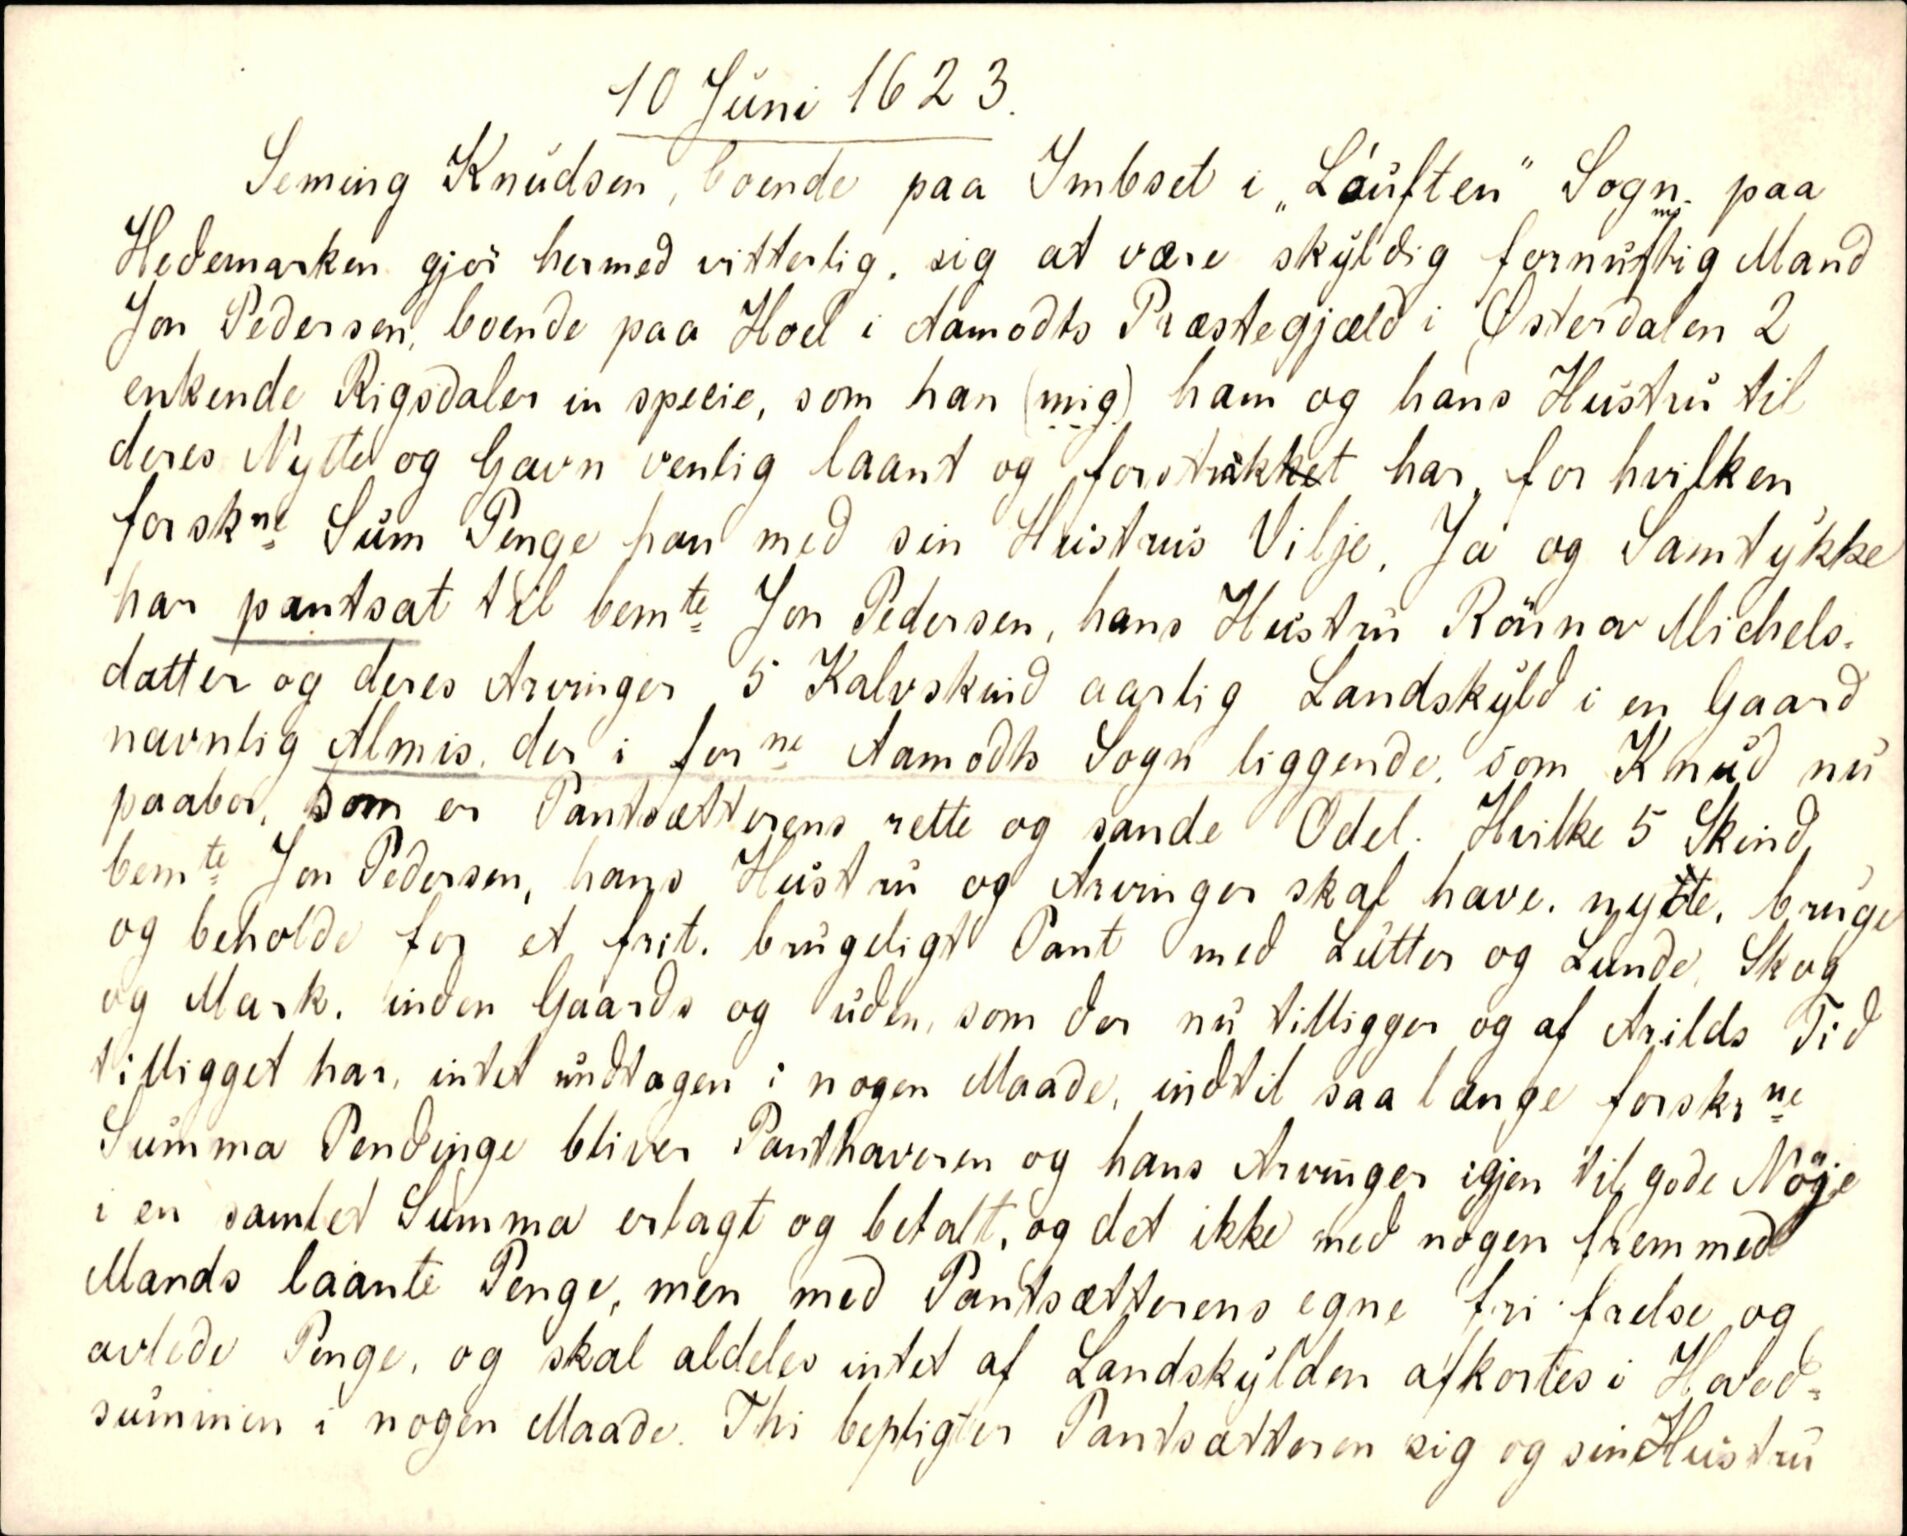 10 Juni 1623.
Seming Knudsen, boende paa Imbset i „Låuften" Sogn paa
Hedemarken gjör hermed vitterlig, sig at være skyldig fornuftig Mand
Jon Pedersen, boende paa Hoel i Aamodts Præstegjæld i Østerdalen 2
enkende Rigsdaler in specie, som han (mig) ham og hans Hustru til
deres Nytte og Gavn venlig laant og forstrakt har, for hvilken
forskne Sum Penge han med sin Hustrus Vilje, Ja og Samtykke
har pantsat til bemte Jon Pedersen, hans Hustru Rönnov Michels-
datter og deres Arvinger 5 Kalvskind aarlig Landskyld i en Gaard
navnlig Almis, der i forne Aamodts Sogn liggende, som Knud nu
paabor, som er Pantsætterens rette og sande Odel. Hvilke 5 Skind
bemte Jon Pedersen, hans Hustru og Arvinger skal have, nyde, bruge
og beholde for et frit, brugeligt Pant med Lutter og Lunde, Skog
og Mark, inden Gaards og uden, som der nu tilligger og af Arilds Tid
tilligget har, intet undtagen i nogen Maade, indtil saa længe forskrne
Summa Pendinge bliver Panthaveren og hans Arvinger igjen til gode Nöje
i en samlet Summa erlagt og betalt, og det ikke med nogen fremmed
Mands laante Penge, men med Pantsætterens egne fri frelse og
avlede Penge, og skal aldeles intet af Landskylden afkortes i Hoved-
summen i nogen Maade. Thi bepligter Pantsætteren sig og sin Hustru